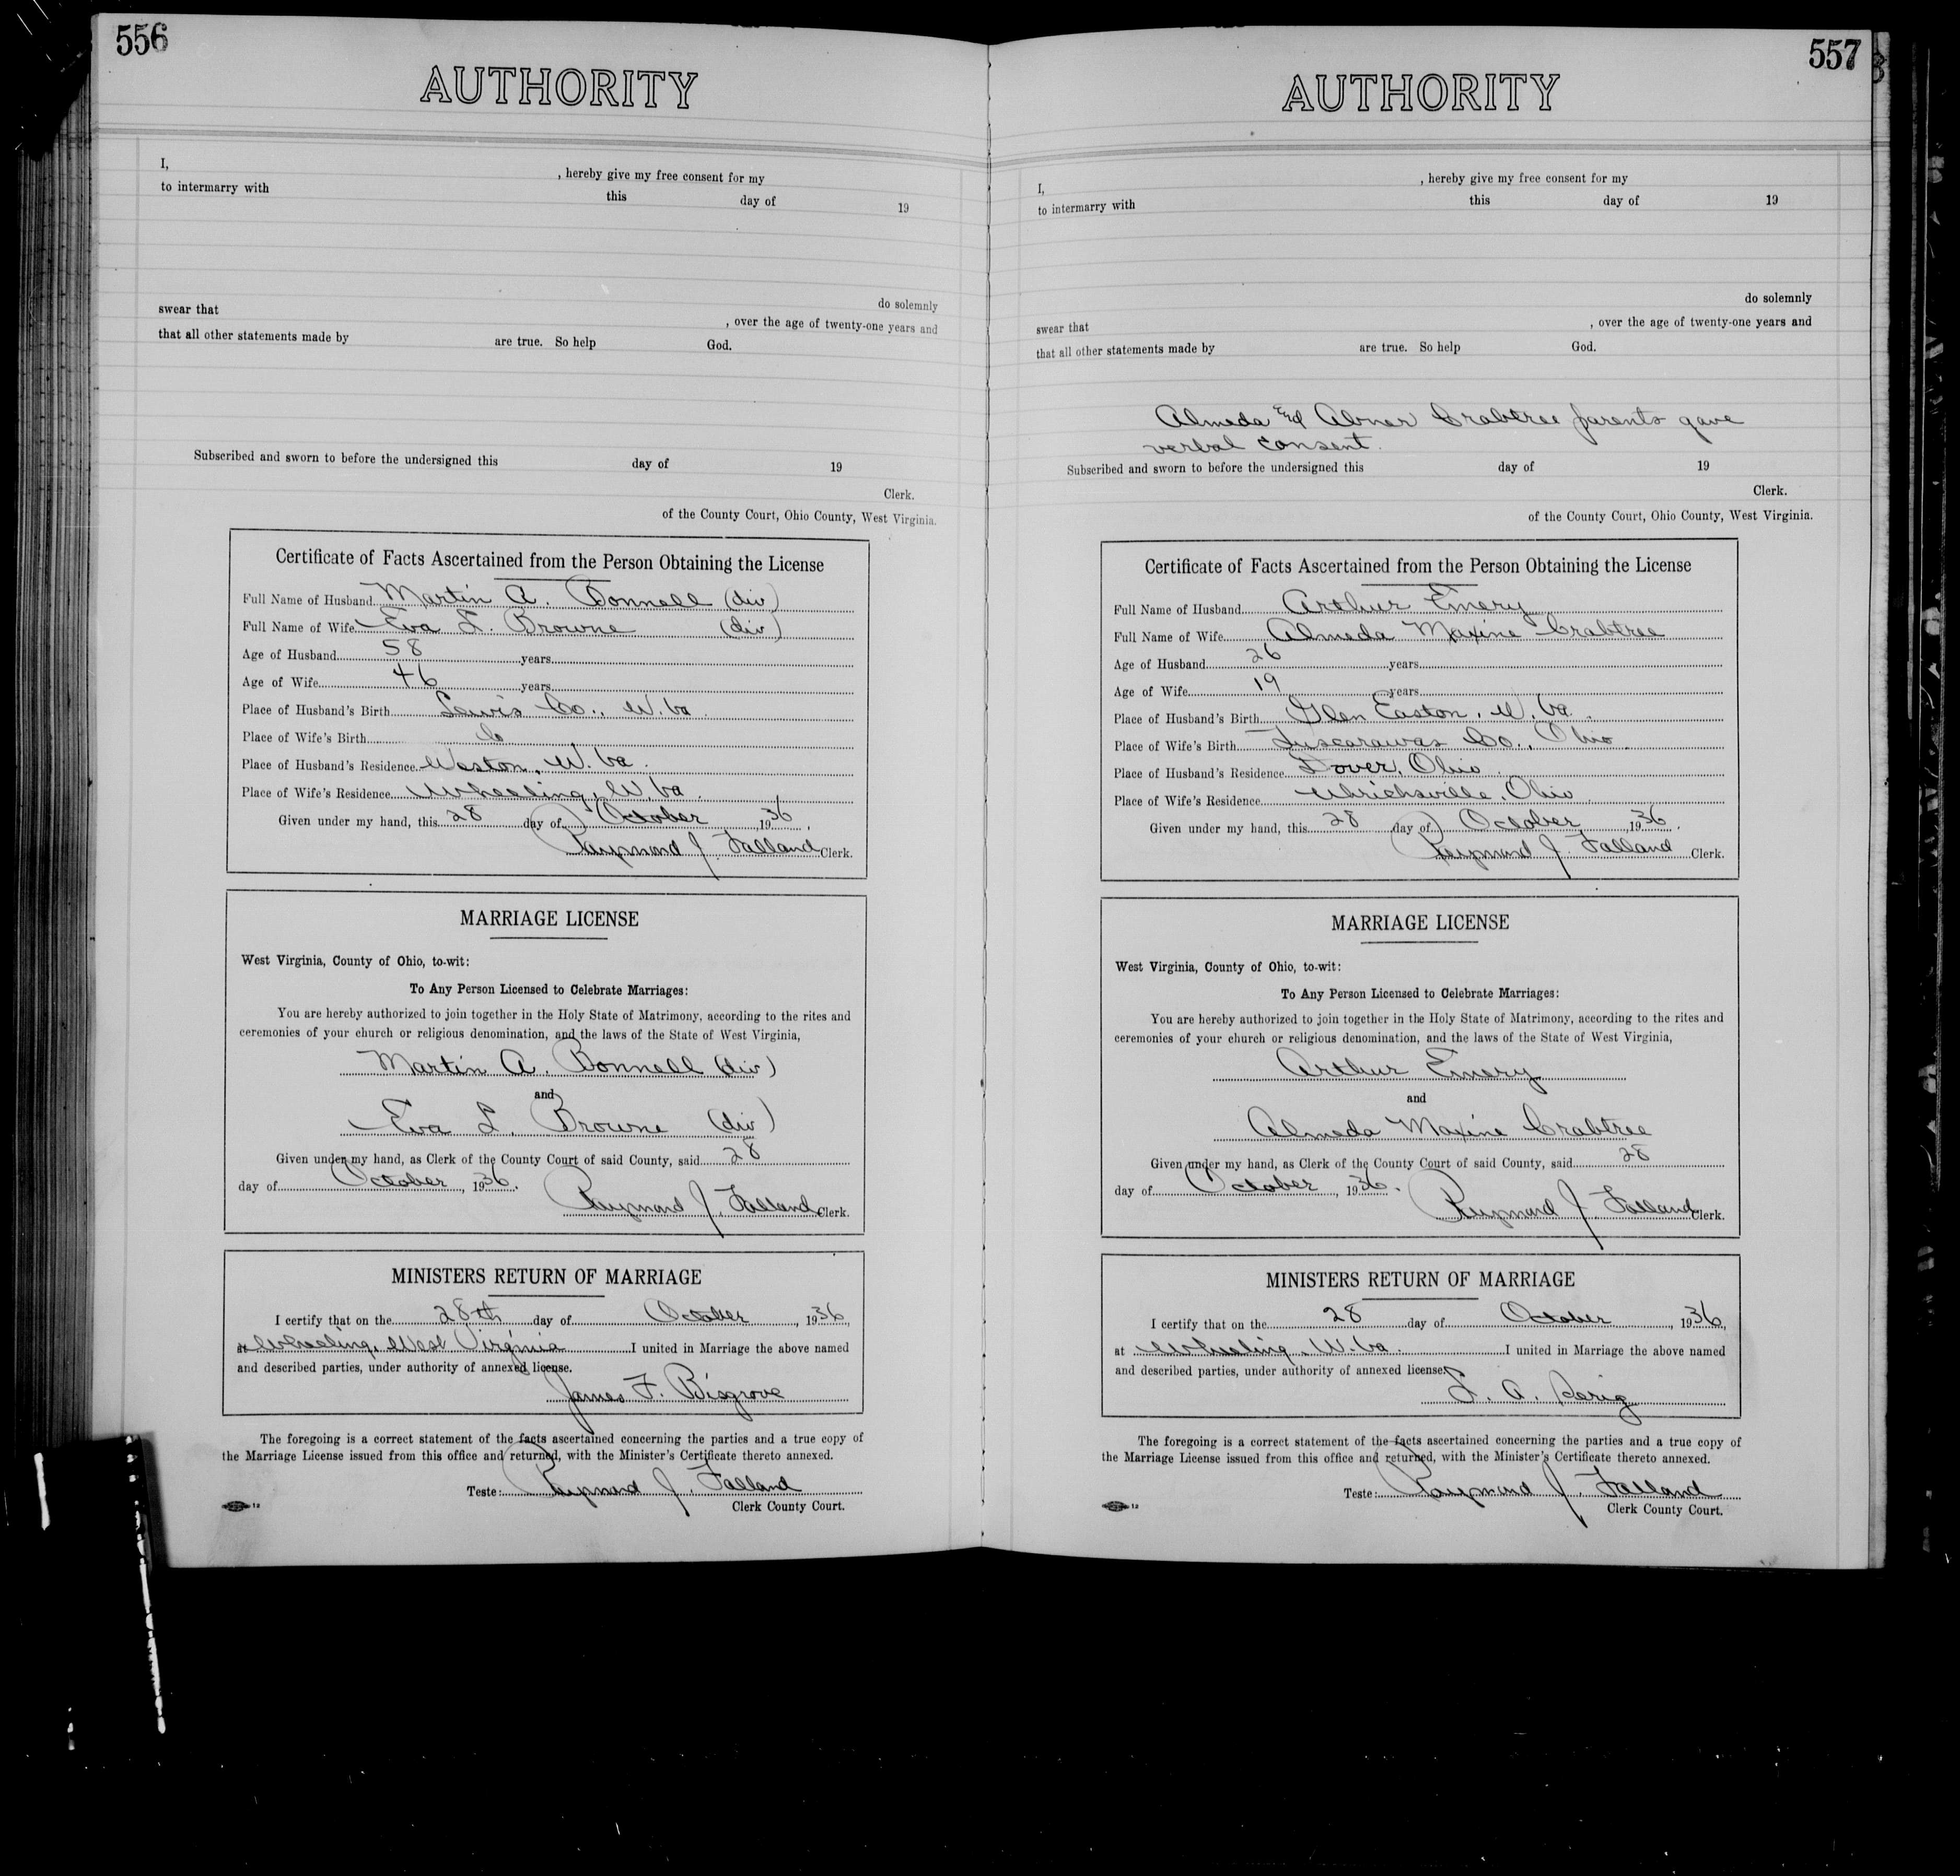 556
AUTHORITY
I, , hereby give my free consent for my
to intermarry with this day of 19
do solemnly
swear that , over the age of twenty-one years and
that all other statements made by are true. So help God.
Subscribed and sworn to before the undersigned this day of 19
Clerk.
of the County Court, Ohio County, West Virginia.
Certificate of Facts Ascertained from the Person Obtaining the License
Full Name of Husband Martin A. Bonnell (div)
Full Name of Wife Eva L. Browne (div)
Age of Husband 58 years
Age of Wife 46 years
Place of Husband's Birth Lewis Co., W. Va.
Place of Wife's Birth
Place of Husband's Residence Weston, W. Va.
Place of Wife's Residence Wheeling, W. Va.
Given under my hand, this 28 day of October, 1936.
Raymond J. Falland Clerk.
MARRIAGE LICENSE
West Virginia, County of Ohio, to-wit:
To Any Person Licensed to Celebrate Marriages:
You are hereby authorized to join together in the Holy State of Matrimony, according to the rites and
ceremonies of your church or religious denomination, and the laws of the State of West Virginia,
Martin A. Bonnell (div)
and
Eva L. Browne (div)
Given under my hand, as Clerk of the County Court of said County, said 28
day of October, 1936.
Raymond J. Falland Clerk.
MINISTERS RETURN OF MARRIAGE
I certify that on the 28th day of October, 1936,
at Wheeling, West Virginia I united in Marriage the above named
and described parties, under authority of annexed license.
James F. Bisgrove
The foregoing is a correct statement of the facts ascertained concerning the parties and a true copy of
the Marriage License issued from this office and returned, with the Minister's Certificate thereto annexed.
Teste: Raymond J. Falland
12 Clerk County Court.
557
AUTHORITY
I, , hereby give my free consent for my
to intermarry with this day of 19
do solemnly
swear that , over the age of twenty-one years and
that all other statements made by are true. So help God.
Almeda and Abner Crabtree parents gave
verbal consent.
Subscribed and sworn to before the undersigned this day of 19
Clerk.
of the County Court, Ohio County, West Virginia.
Certificate of Facts Ascertained from the Person Obtaining the License
Full Name of Husband Arthur Emery
Full Name of Wife Almeda Maxine Crabtree
Age of Husband 26 years
Age of Wife 19 years
Place of Husband's Birth Glen Easton, W. Va.
Place of Wife's Birth Tuscarawas Co., Ohio
Place of Husband's Residence Dover, Ohio
Place of Wife's Residence Uhrichsville, Ohio
Given under my hand, this 28 day of October, 1936.
Raymond J. Falland Clerk.
MARRIAGE LICENSE
West Virginia, County of Ohio, to-wit:
To Any Person Licensed to Celebrate Marriages:
You are hereby authorized to join together in the Holy State of Matrimony, according to the rites and
ceremonies of your church or religious denomination, and the laws of the State of West Virginia,
Arthur Emery
and
Almeda Maxine Crabtree
Given under my hand, as Clerk of the County Court of said County, said 28
day of October, 1936.
Raymond J. Falland Clerk.
MINISTERS RETURN OF MARRIAGE
I certify that on the 28 day of October, 1936,
at Wheeling, W. Va. I united in Marriage the above named
and described parties, under authority of annexed license.
L. A. Serig
The foregoing is a correct statement of the facts ascertained concerning the parties and a true copy of
the Marriage License issued from this office and returned, with the Minister's Certificate thereto annexed.
Teste: Raymond J. Falland
12 Clerk County Court.